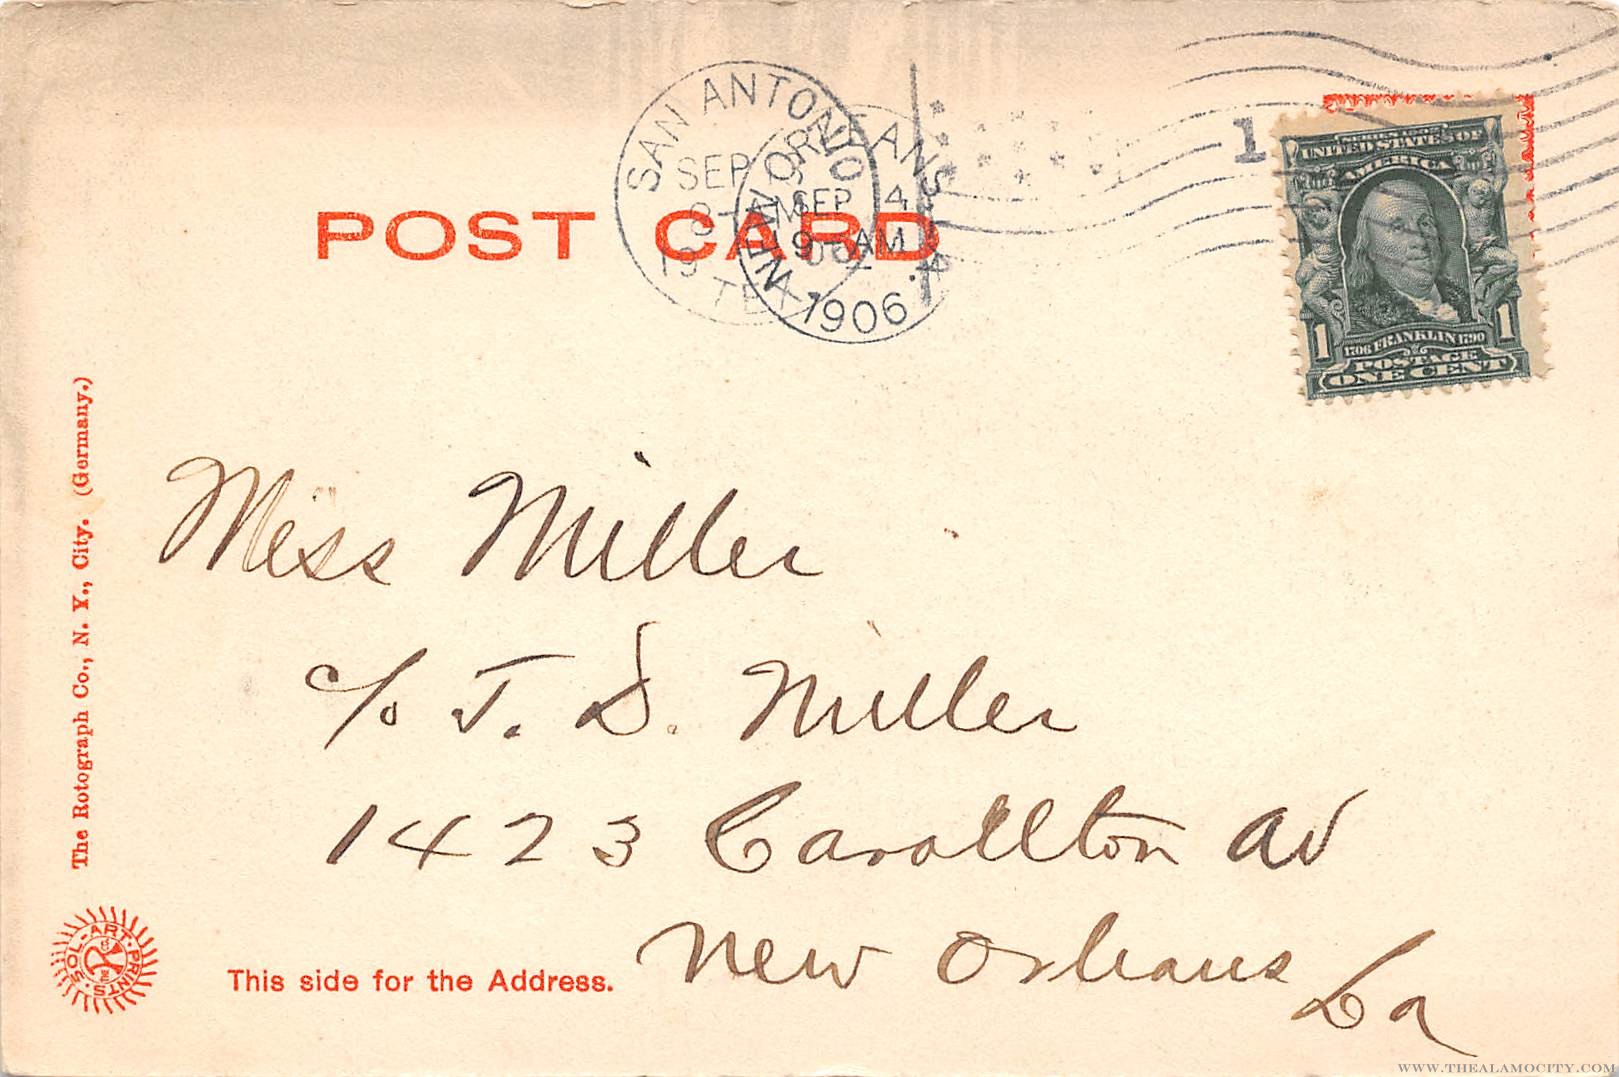 SAN ANTONIO
SEP
8-AM
19
TEX.
NEW ORLEANS
SEP 4
9-AM
1906.
1
UNITED STATES OF
AMERICA
1 1
1706 FRANKLIN 1790
POSTAGE
ONE CENT
POST CARD
Miss Miller
c/o J. D. Miller
1423 Carollton Av
New Orleans
La
The Rotograph Co., N. Y., City. (Germany.)
SOL-ART-PRINTS
This side for the Address.
WWW.THEALAMOCITY.COM